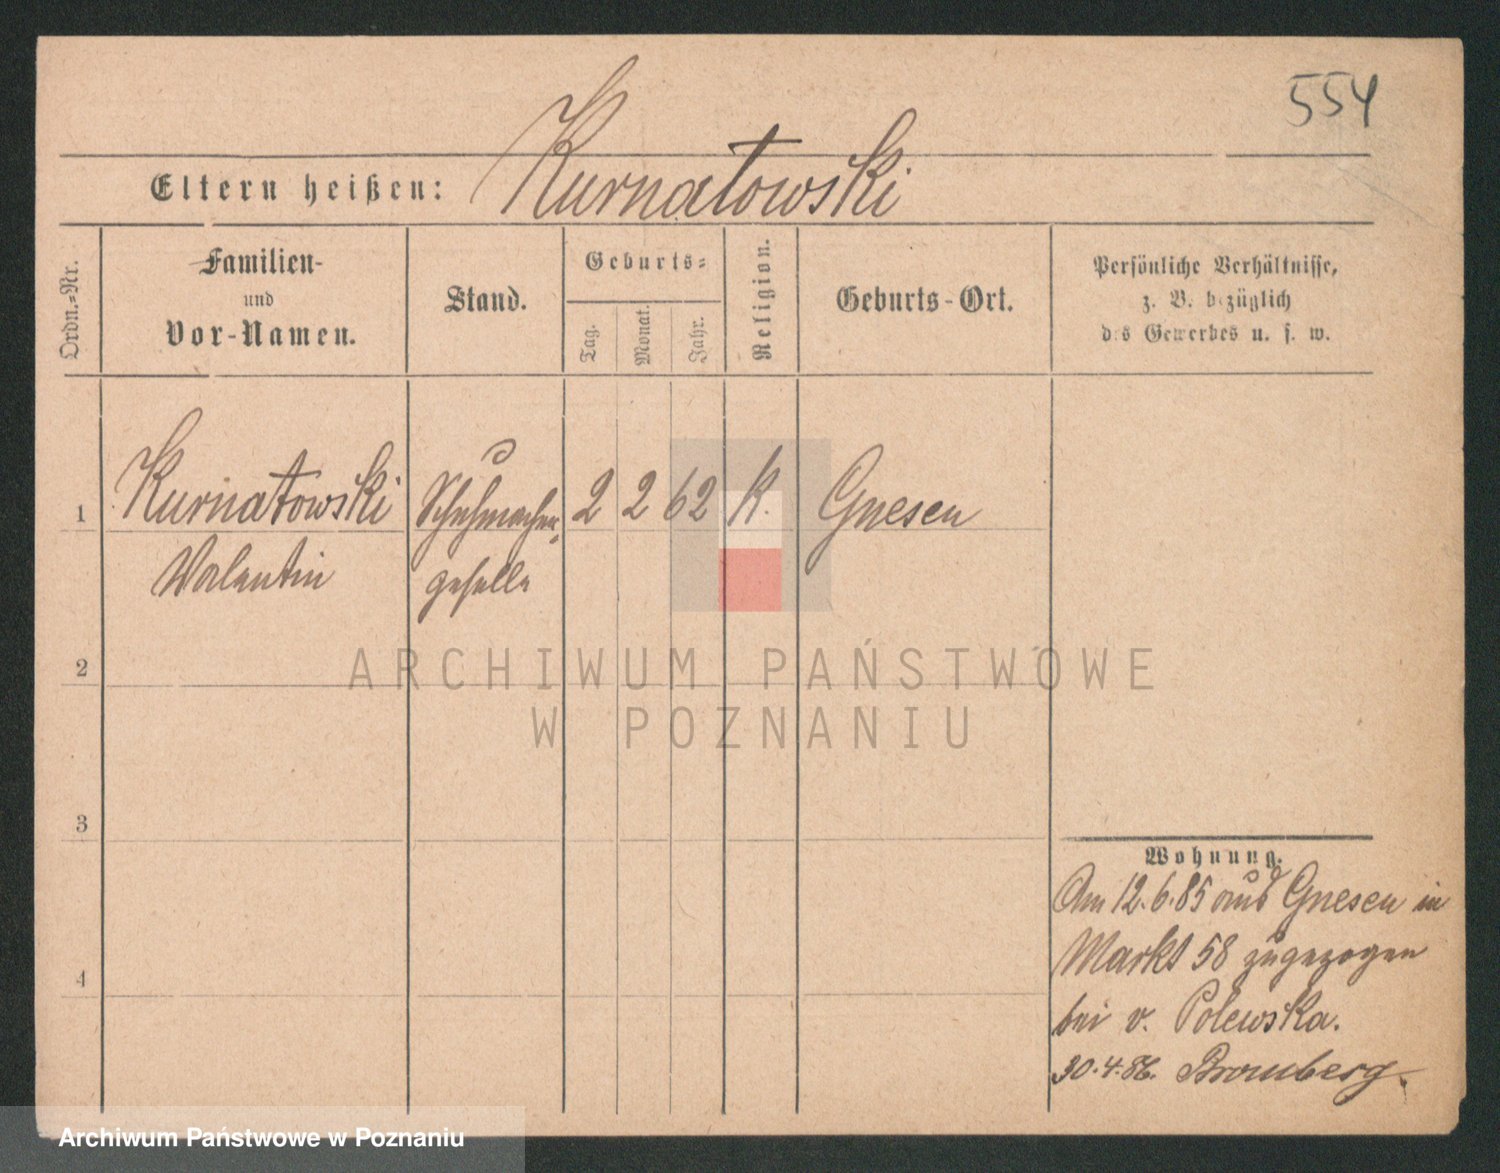 554
Kurnatowski
Eltern heißen:
Ordn.=Nr.
Familien-
und
Vor-Namen.
Stand.
Geburts=
Tag.
Monat.
Jahr.
Religion.
Geburts-Ort.
Persönliche Verhältnisse,
z. B. bezüglich
des Gewerbes u. s. w.
1 Kurnatowski Schuhmacher= 2 2 62 K. Gnesen
Valentin geselle
2
ARCHIWUM PAŃSTWOWE
W POZNANIU
3
Wohnung.
Am 12.6.85 aus Gnesen in
4
Markt 58 zugezogen
bei v. Polewska.
30.4.86. Bromberg.
Archiwum Państwowe w Poznaniu